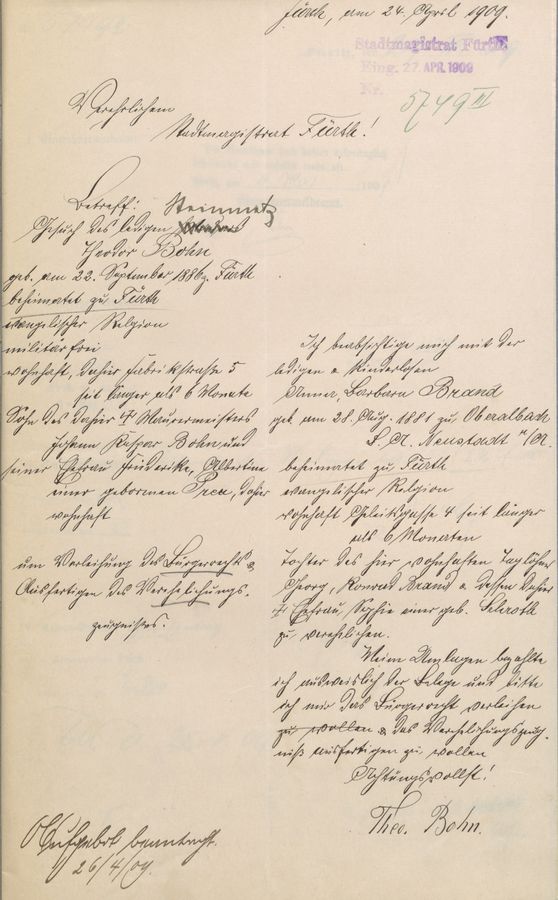 Fürth, am 24. April 1909.
Stadtmagistrat Fürth
Eing. 27. APR. 1909
Nr.
5749 III
Verehrlichem
Stadtmagistrat Fürth!
Betreff: Steinmetz
Gesuch des ledigen
Theodor Bohn
geb. am 22. September 1886 z. Fürth
beheimatet zu Fürth
evangelischer Religion
militärfrei
wohnhaft, dahier Fabrikstraße 5
seit länger als 6 Monate
Sohn des dahier † Maurermeisters
Johann Kaspar Bohn und
seiner Ehefrau Friederike, Albertine
einer gebornen Prea, dahier
wohnhaft
um Verleihung des Bürgerrechts &
Ausfertigen des Verehelichungs-
zeugnisses.
Ich beabsichtige mich mit der
ledigen & kinderlosen
Anna, Barbara Brand
geb. am 28. Aug. 1881 zu Oberalbach
B. A. Neustadt a/A.
beheimatet zu Fürth
evangelischer Religion
wohnhaft Geleitsgasse 4 seit länger
als 6 Monaten
Tochter des hier wohnhaften Taglöhners
Georg, Konrad Brand & dessen dahier
† Ehefrau, Sophie einer geb.
zu verehelichen.
Meine Umlagen bezahlte
ich ausweislich der Belege und bitte
ich mir das Bürgerrecht verleihen
zu wollen & das Verehelichungszeug-
niß ausfertigen zu wollen
Achtungsvollst!
Theo. Bohn.
Aufgebot beantragt.
26/4/09.